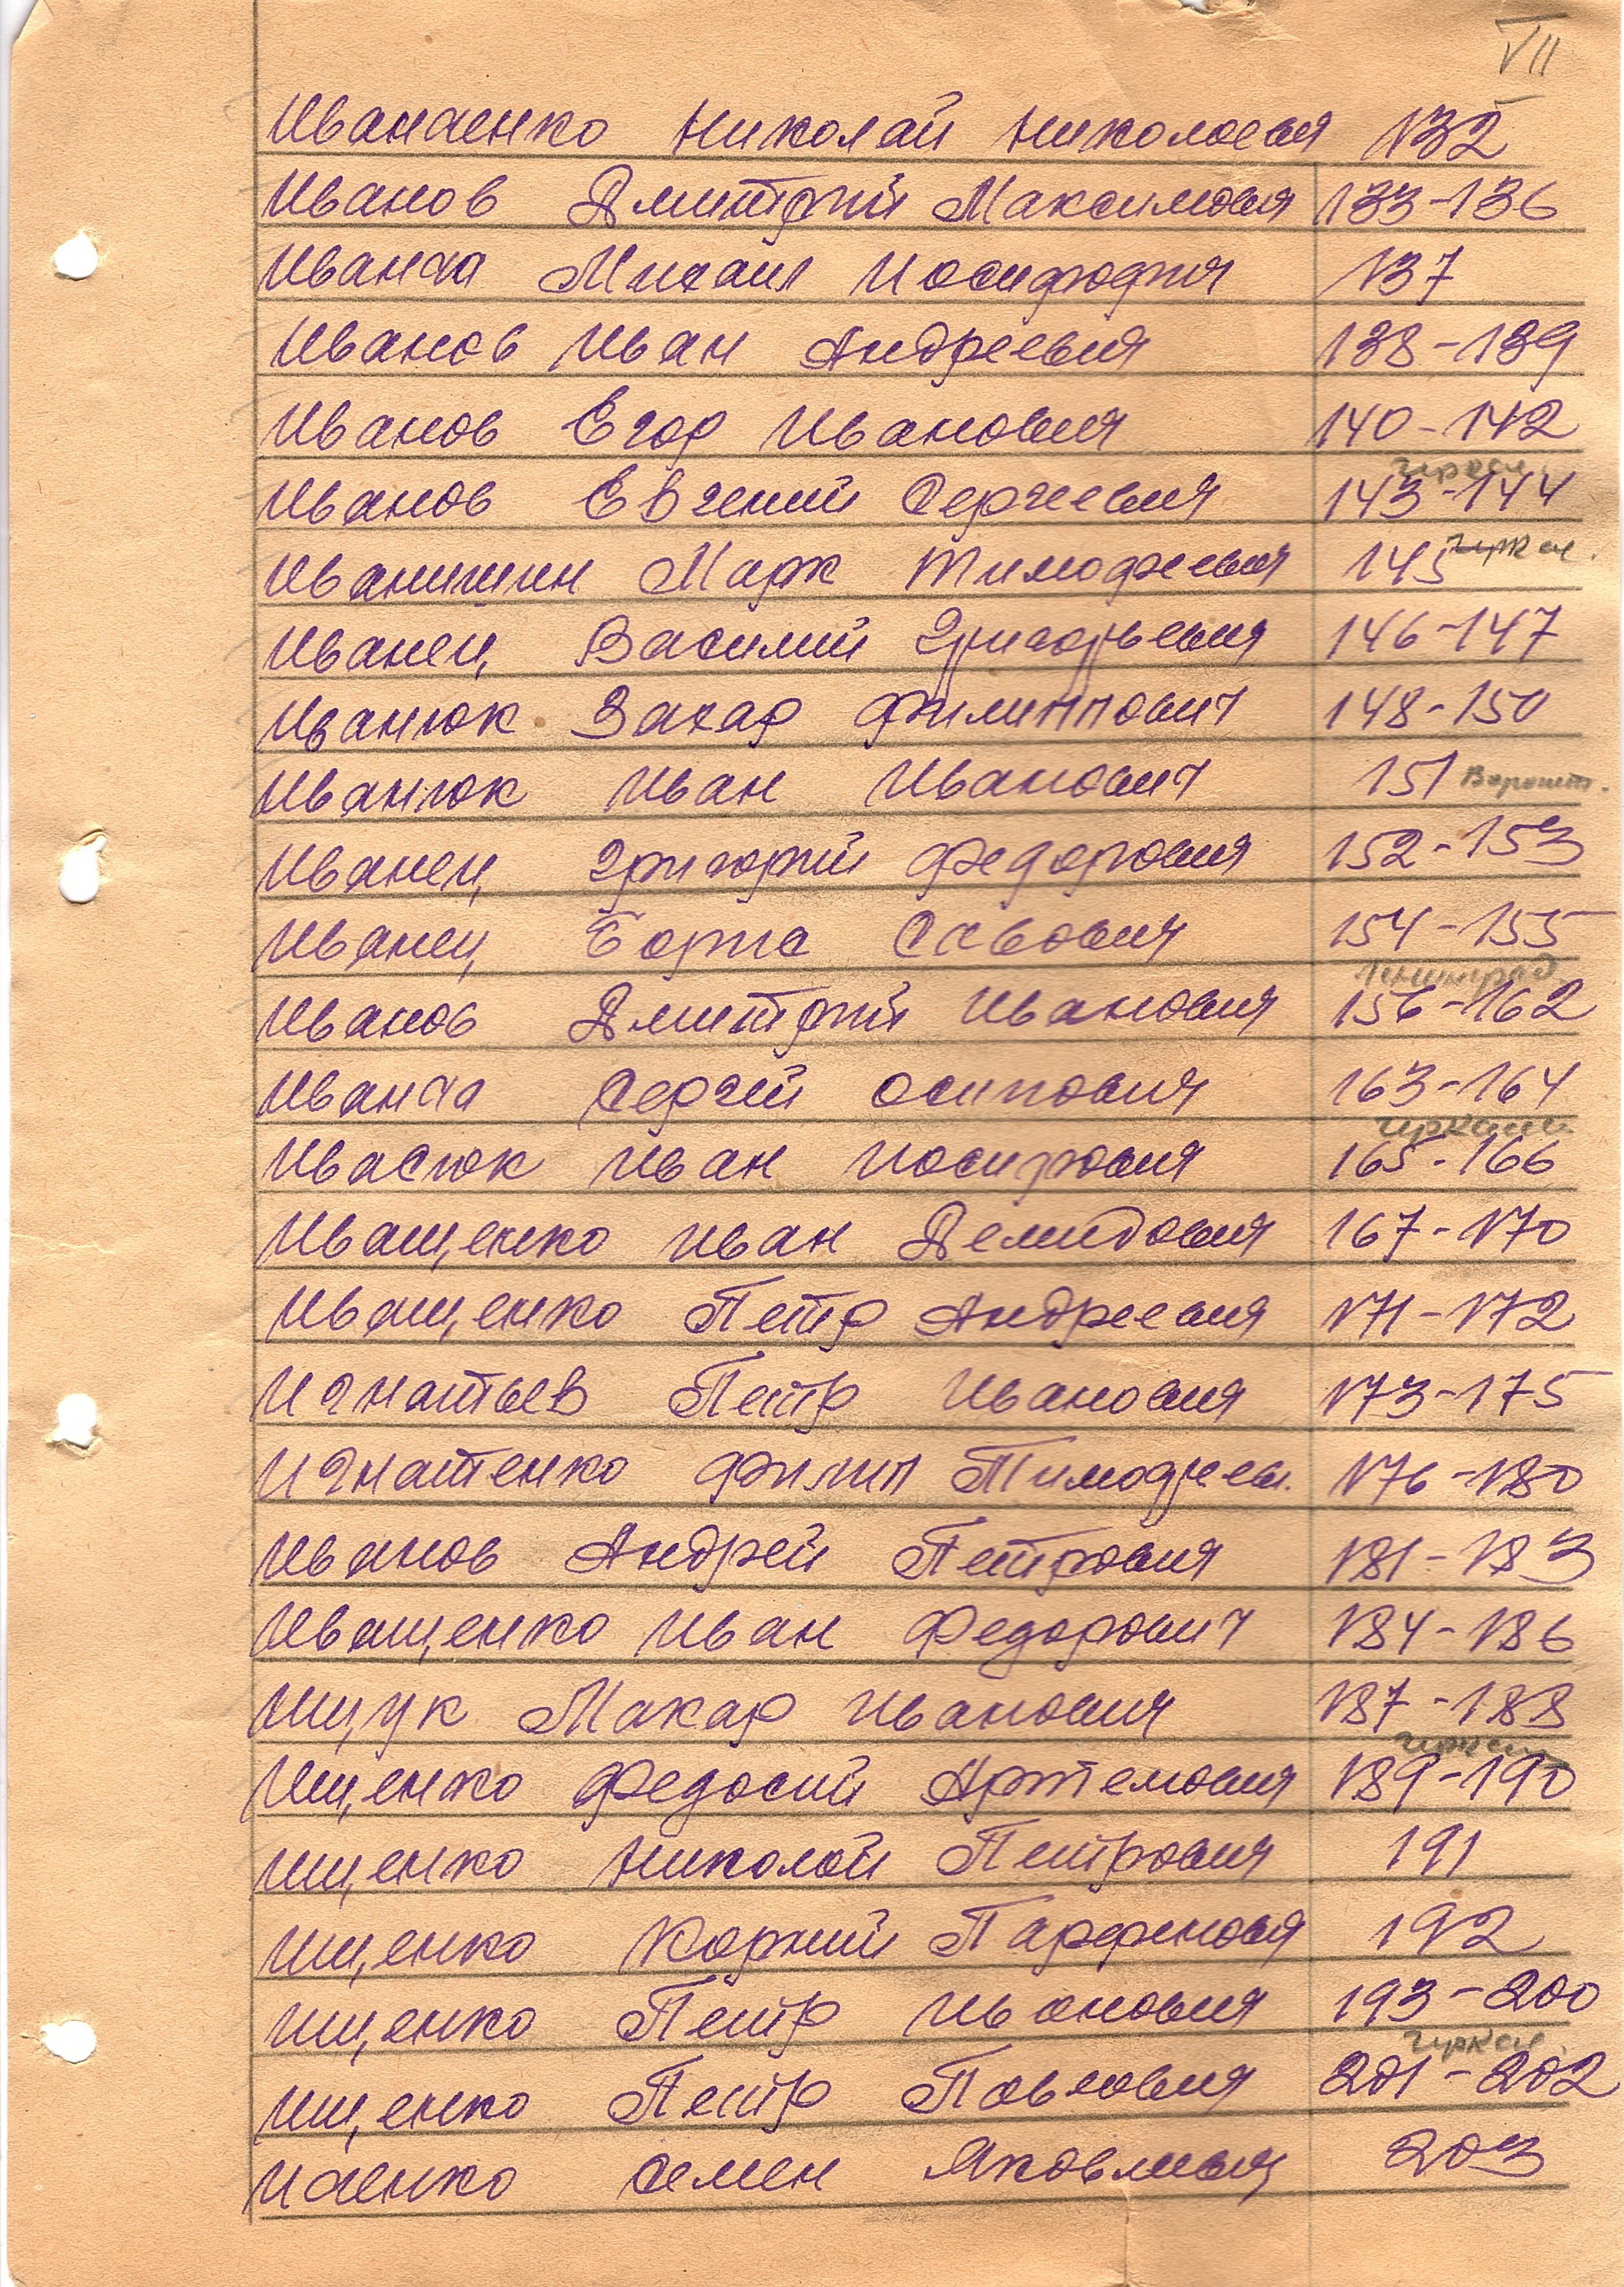 VII
Иванченко Николай Николаевич 132
Иванов Дмитрий Максимович 133-136
Иванча Михаил Иосифофич 137
Иванов Иван Андреевич 138-139
Иванов Егор Иванович 140-142
Иванов Евгений Сергеевич 143-144
Иванишин Марк Тимофеевич 145
Иванец Василий Григорьевич 146-147
Иванюк Захар Филиппович 148-150
Иванюк Иван Иванович 151
Иванец Григорий Федорович 152-153
Иванец Борис Саввович 154-155
Ленинград
Иванов Дмитрий Иванович 156-162
Иванча Сергей Осипович 163-164
Ивасюк Иван Иосифович 165-166
Иващенко Иван Демидович 167-170
Иващенко Петр Андреевич 171-172
Игнатьев Петр Иванович 173-175
Игнатенко Филип Тимофеев. 176-180
Иванов Андрей Петрович 181-183
Иващенко Иван Федорович 184-186
Ищук Макар Иванович 187-188
Ищенко Федосий Артемович 189-190
Ищенко Николай Петрович 191
Ищенко Корний Парфенович 192
Ищенко Петр Иванович 193-200
Ищенко Петр Павлович 201-202
Иченко Семен Яковлевич 203